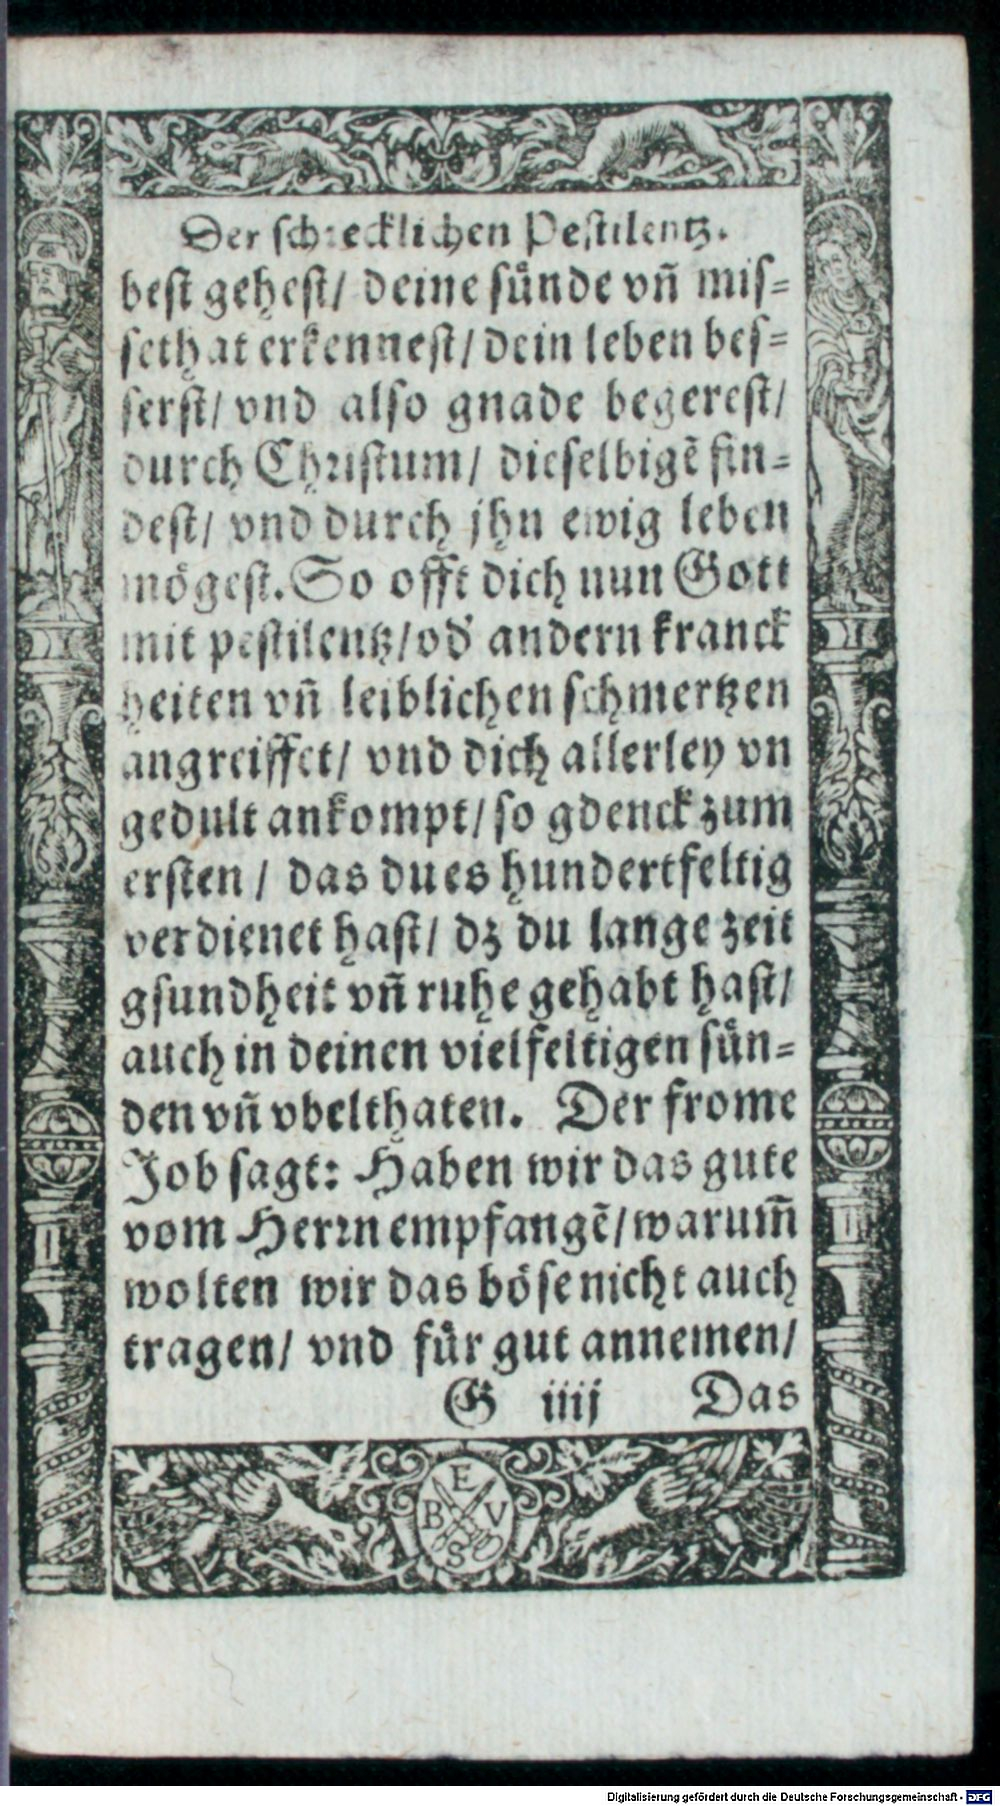 Der schrecklichen Pestilentz.
best gehest/ deine sünde vñ mis=
sethat erkennest/ dein leben bes=
serst/ vnd also gnade begerest/
durch Christum/ dieselbigẽ fin=
dest/ vnd durch jhn ewig leben
mögest. So offt dich nun Gott
mit pestilentz/ od' andern kranck
heiten vñ leiblichen schmertzen
angreiffet/ vnd dich allerley vn
gedult ankompt/ so gdenck zum
ersten/ das du es hundertfeltig
verdienet hast/ dz du lange zeit
gsundheit vñ ruhe gehabt hast/
auch in deinen vielfeltigen sün=
den vñ vbelthaten. Der frome
Job sagt: Haben wir das gute
vom Herrn empfangẽ/ warum̃
wolten wir das böse nicht auch
tragen/ vnd für gut annemen/
G iiij Das
E
B V
S
Digitalisierung gefördert durch die Deutsche Forschungsgemeinschaft - DFG